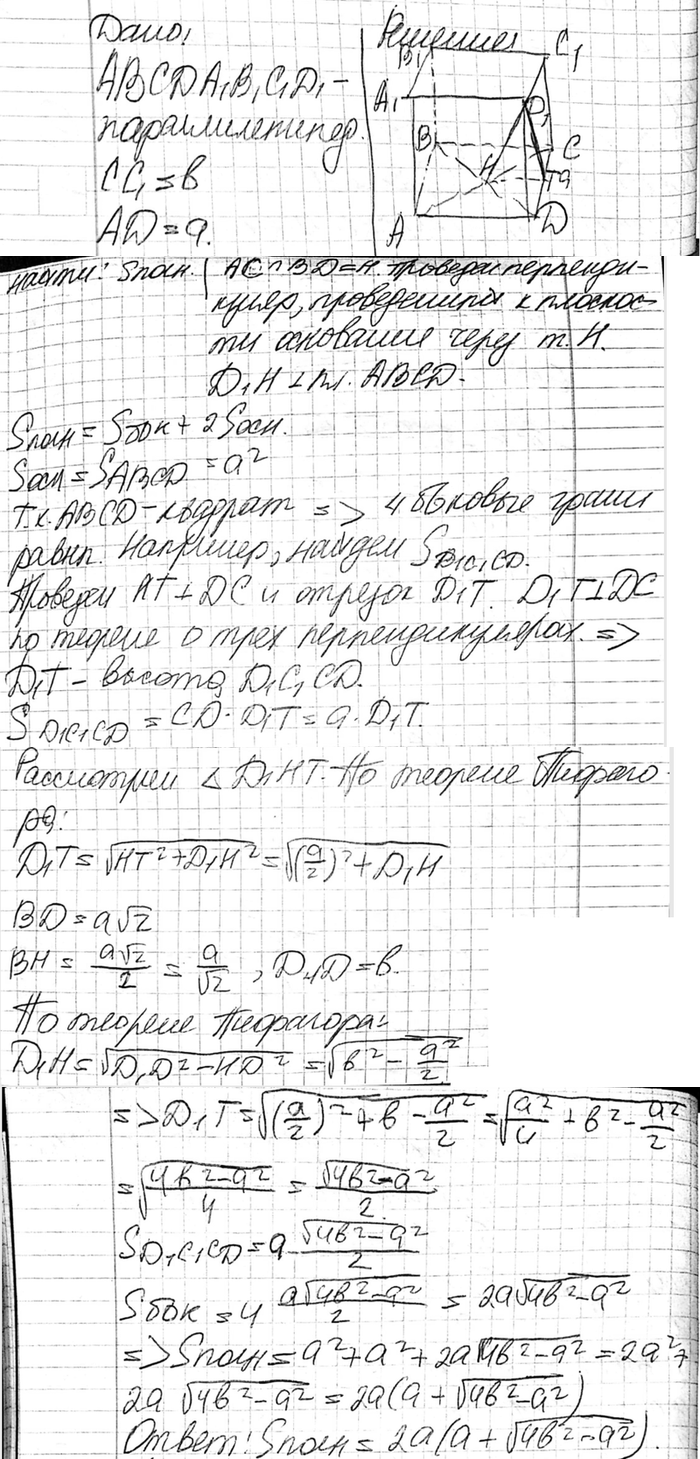 Дано:
ABCDA₁B₁C₁D₁ –
параллелепипед.
CC₁ = в
AD = a.
Решение:
B₁ C₁
A₁ D₁
B C
H T a
A D
найти: Sполн.
AC∩BD=H. Проведем перпенди-
куляр, проведенный к плоскос-
ти основания через т. H.
D₁H ⊥ пл. ABCD.
Sполн = Sбок + 2Sосн.
Sосн = S_ABCD = a²
т.к. ABCD – квадрат => 4 боковые грани
равны. Например, найдем S_D₁C₁CD.
Проведем HT ⊥ DC и отрезок D₁T. D₁T ⊥ DC
по теореме о трех перпендикулярах. =>
D₁T – высота D₁C₁CD.
S_D₁C₁CD = CD · D₁T = a · D₁T.
Рассмотрим △ D₁HT. По теореме Пифаго-
ра:
D₁T = √(HT² + D₁H²) = √((a/2)² + D₁H)
BD = a√2
BH = a√2/2 = a/√2 , D₁D = в.
По теореме Пифагора:
D₁H = √(D₁D² – HD²) = √(в² – a²/2)
=> D₁T = √((a/2)² + в – a²/2) = √(a²/4 + в² – a²/2)
= √((4в² – a²)/4) = √(4в² – a²)/2.
S_D₁C₁CD = a √(4в² – a²)/2
Sбок = 4 a√(4в² – a²)/2 = 2a√(4в² – a²)
=> Sполн = a² + a² + 2a√(4в² – a²) = 2a² +
2a √(4в² – a²) = 2a(a + √(4в² – a²))
Ответ: Sполн = 2a(a + √(4в² – a²)).